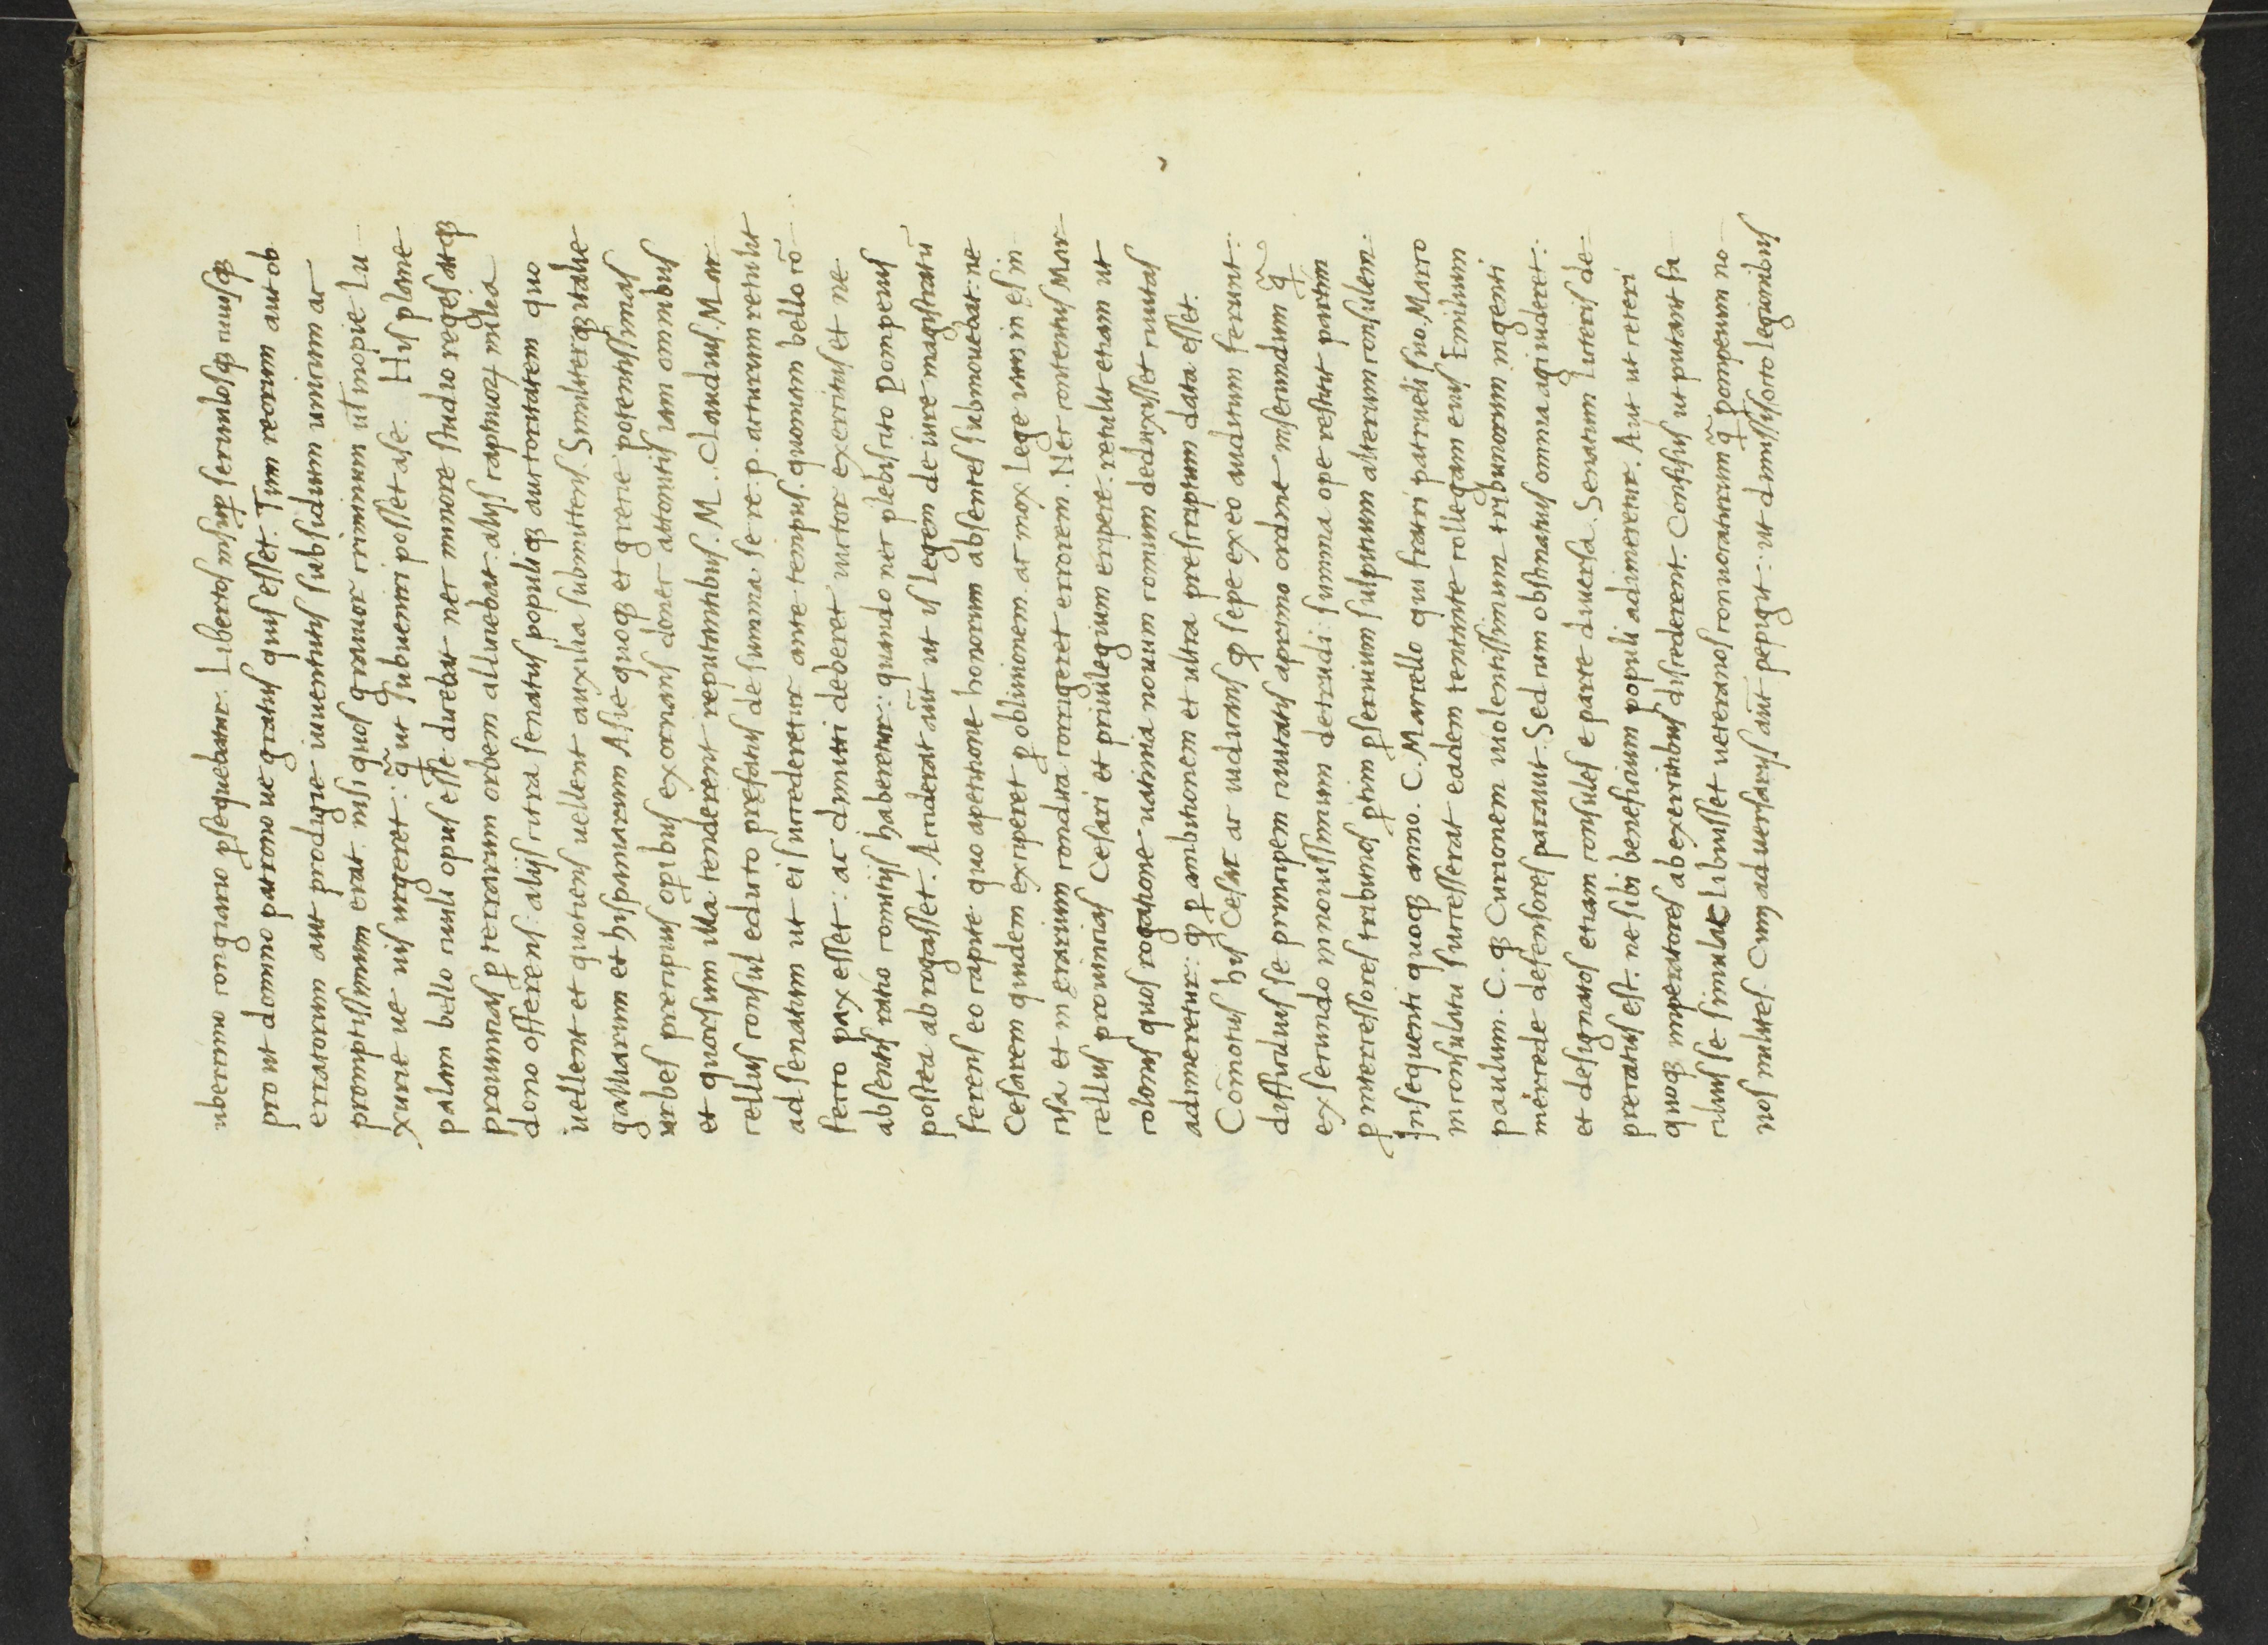 uberrimo congiario ꝑsequebatur. Libertos insuꝑ seruulosqꝫ cuiusqꝫ
prout domino patronoue gratus quis esset. Tum reorum aut ob
erratorum aut prodige iuuentutis subsidium unicum ac
promptissimum erat. nisi quos grauior criminum ut̄ inopie lu
xurie ue uis urgeret: q̄ ut subueniri posset a se. His plane
palam bello ciuili opus esse ducebat nec minore studio reges atqꝫ
prouincias ꝑ terrarum orbem alliciebat. alijs captiuoꝝ milia
dono offerens: alijs citra senatus populiqꝫ auctoritatem quo
uellent et quotiens uellent auxilia submittens. Similiterqꝫ italie
galliarum et hispaniarum Asie quoqꝫ et grecie potentissimas
urbes precipuis oꝑibus exornans donec attonitis iam omnibus
et quorsum illa tenderent reputantibus. M. Claudius. Mar
cellus consul edicto prefatus de summa. se re. p. acturum retulit
ad senatum ut ei succederetur ante tempus. quoniam bello cō
fecto pax esset: ac dimitti deberet uictor exercitus et ne
absentis ratio comitijs haberetur: quando nec plebiscito Pompeius
postea abrogasset. Acciderat aūt ut is legem de iure magistratū
ferens eo capite quo a petitione honorum absentes submouebat: ne
Cesarem quidem exciperet ꝑ obliuionem. ac mox lege iam in es in
cisa et in erarium condita corrigeret errorem. Nec contentus Mar
cellus prouincias Cesari et priuilegium eripere. retulit etiam ut
colonis quos rogatione uatinia nouum comum deduxisset ciuitas
adimeretur: ꝙ ꝑ ambitionem et ultra prescriptum data esset.
Com̄otus his Cesar ac iudicans ꝙ sepe ex eo auditum ferunt:
difficilius se principem ciuitatis a primo ordine in secundum q̄
ex secundo in nouissimum detrudi: summa ope restitit partim
ꝑ intercessores tribunos ꝑtim ꝑ seruium sulpitium alterum consulem:
Insequenti quoqꝫ anno. C. Marcello qui fratri patrueli suo. Marco
in consulatu successerat eadem tentante collegam eius Emilium
paulum. C. qꝫ Curionem uiolentissimum tribunorum ingenti
mercede defensores parauit. Sed cum obstinatius omnia agi uideret:
et designatos etiam consules e parte diuersa. Senatum litteris de
precatus est. ne sibi beneficium populi adimeretur. Aut ut ceteri
quoqꝫ imperatores ab exercitibus discederent. Confisus ut putant fa
cilius se simulac libuisset ueteranos conuocaturum q̄ pompeium no
uos milites. Cum aduersarijs aūt pepigit: ut dimissis octo legionibus